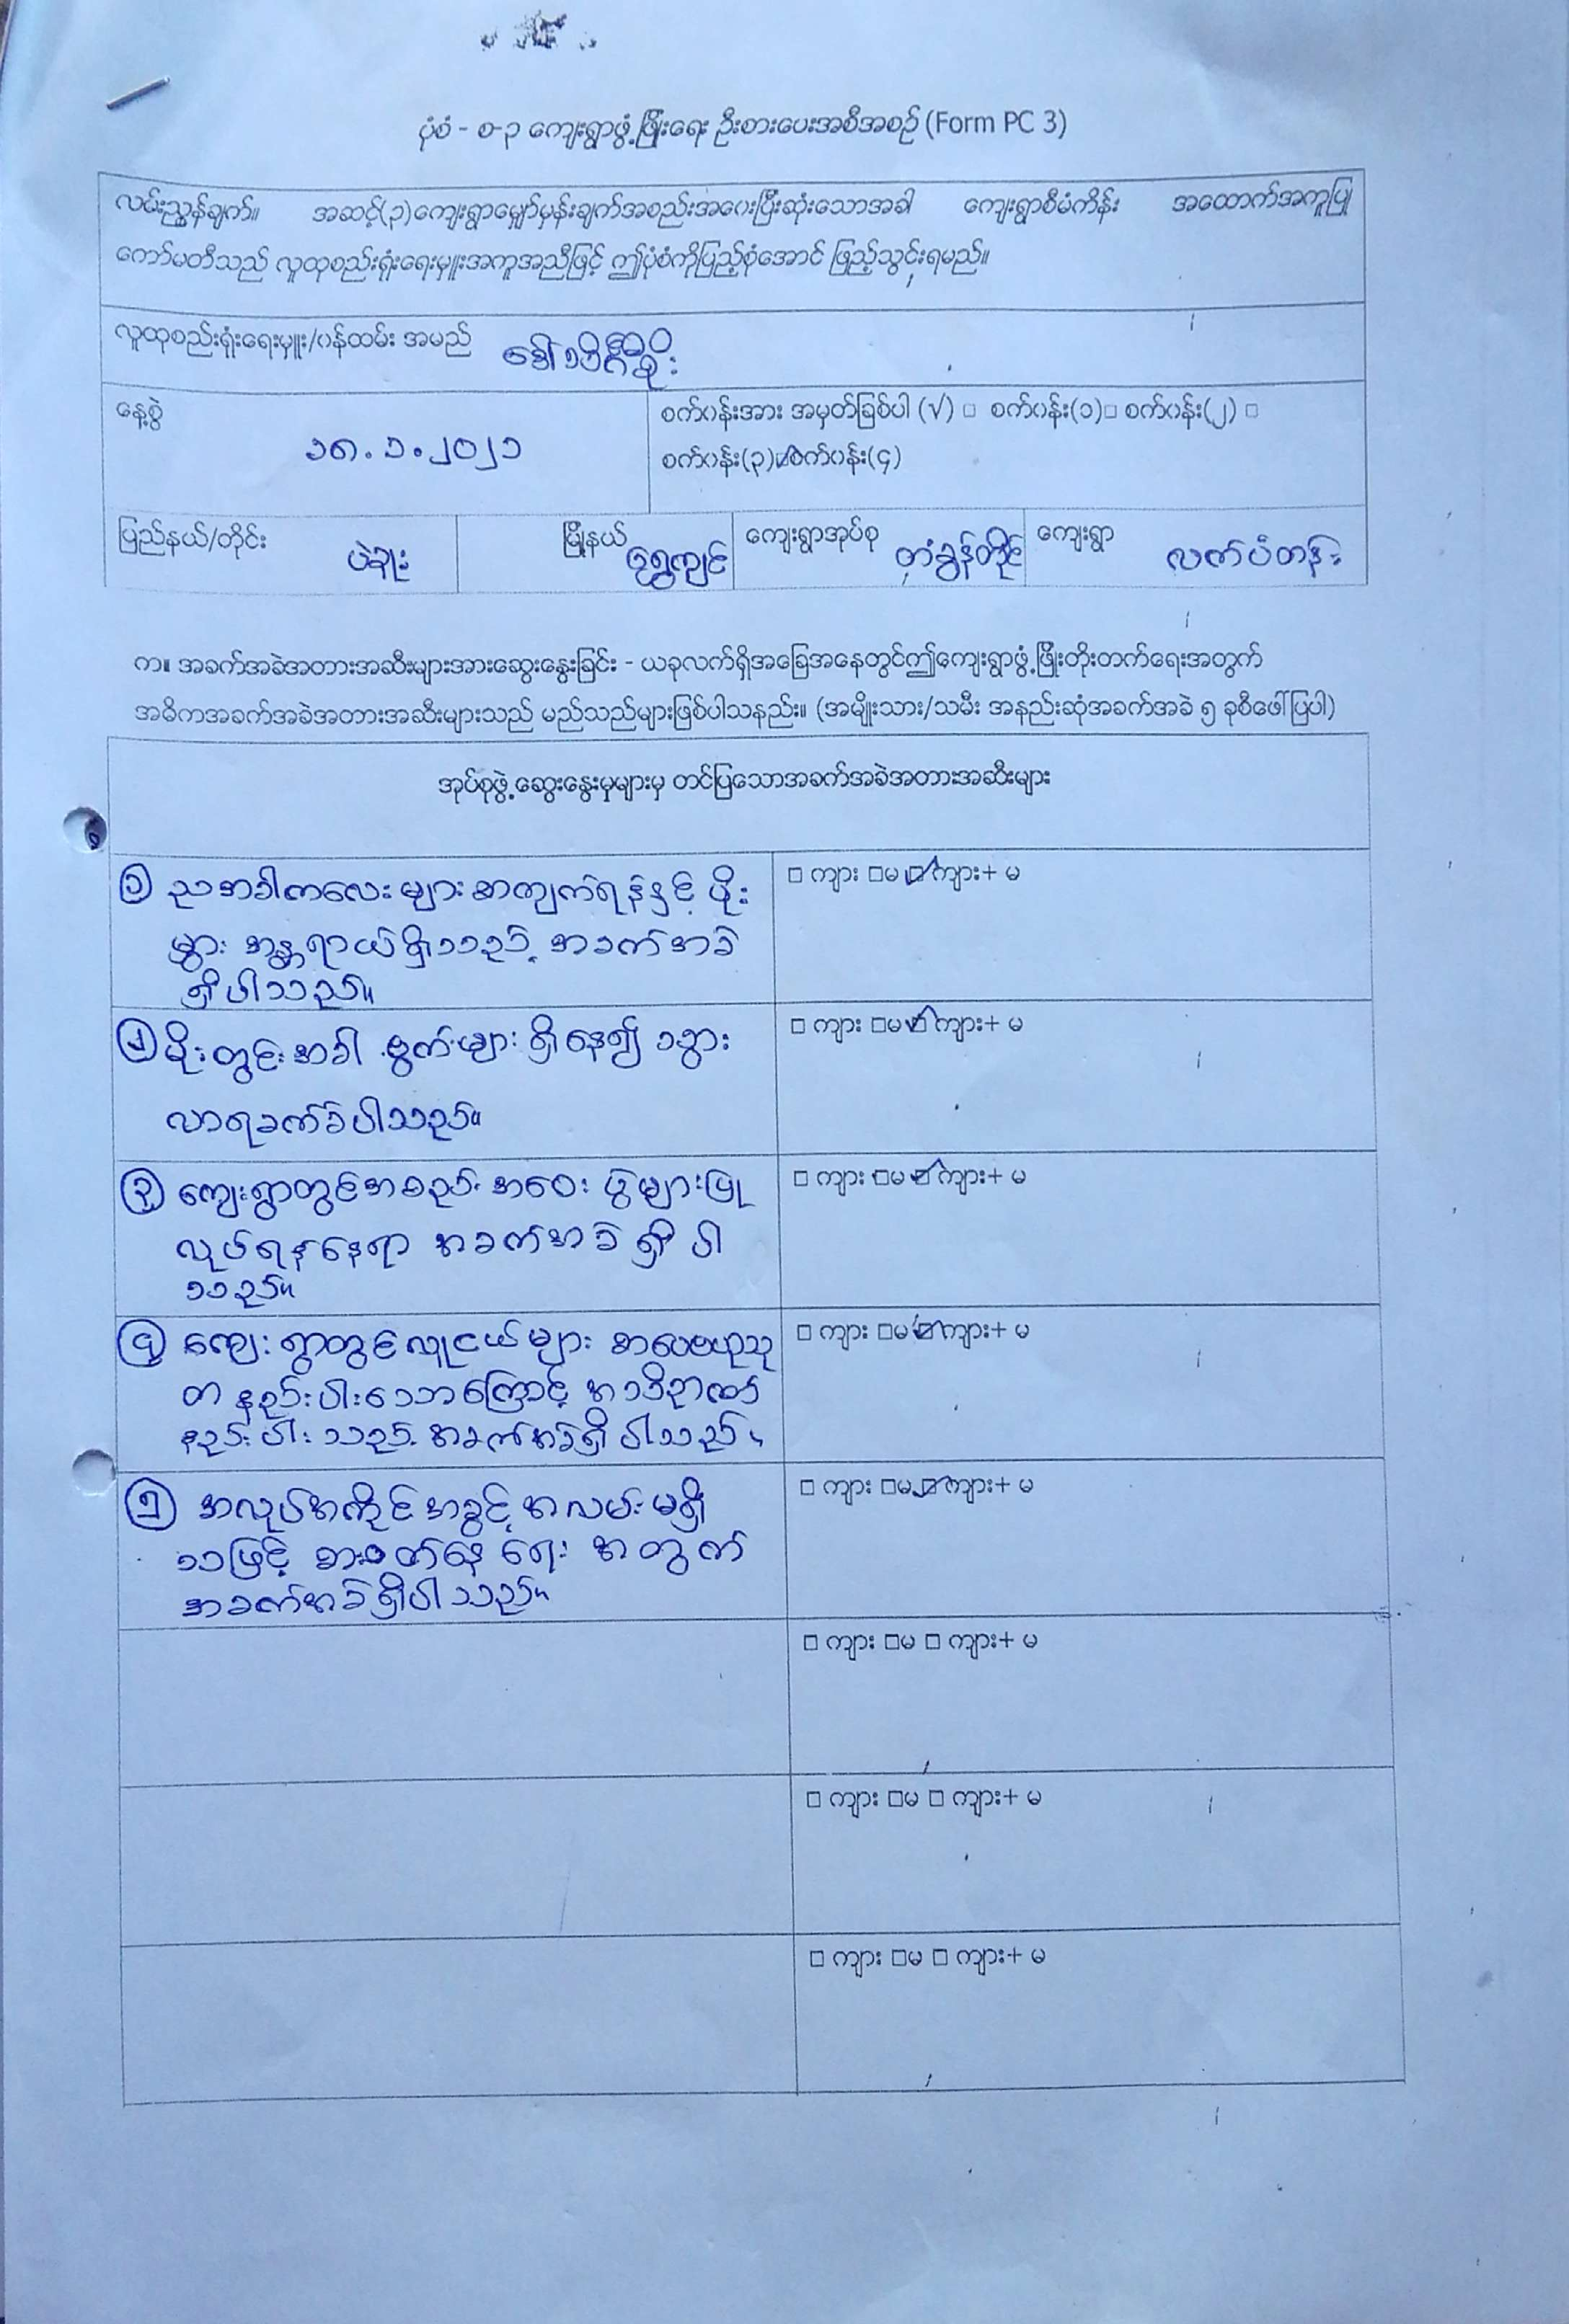 ပုံစံ - စ-၃ ကျေးရွာဖွံ့ဖြိုးရေး ဦးစားပေးအစီအစဉ် (Form PC 3)
လမ်းညွှန်ချက်။ အဆင့်(၃)ကျေးရွာမျှော်မှန်းချက်အစည်းအဝေးပြီးဆုံးသောအခါ ကျေးရွာစီမံကိန်း အထောက်အကူပြု
ကော်မတီသည် လူထုစည်းရုံးရေးမှူးအကူအညီဖြင့် ဤပုံစံကိုပြည့်စုံအောင် ဖြည့်သွင်းရမည်။
လူထုစည်းရုံးရေးမှူး/ဝန်ထမ်း အမည် ဒေါ်သိင်္ဂီစိုး
နေ့စွဲ ၁၈.၁.၂၀၂၁
စက်ဝန်းအား အမှတ်ခြစ်ပါ (√) □ စက်ဝန်း(၁)□ စက်ဝန်း(၂) □
စက်ဝန်း(၃)☑စက်ဝန်း(၄)
ပြည်နယ်/တိုင်း ပဲခူး မြို့နယ် ရွှေကျင် ကျေးရွာအုပ်စု တံခွန်တိုင် ကျေးရွာ လက်ပံတန်း
က။ အခက်အခဲအတားအဆီးများအားဆွေးနွေးခြင်း - ယခုလက်ရှိအခြေအနေတွင်ဤကျေးရွာဖွံ့ဖြိုးတိုးတက်ရေးအတွက်
အဓိကအခက်အခဲအတားအဆီးများသည် မည်သည်များဖြစ်ပါသနည်း။ (အမျိုးသား/သမီး အနည်းဆုံအခက်အခဲ ၅ ခုစီဖေါ်ပြပါ)
အုပ်စုဖွဲ့ဆွေးနွေးမှုများမှ တင်ပြသောအခက်အခဲအတားအဆီးများ
၁ ညအခါကလေးများစာကျက်ရန်နှင့် ပိုး
မွှား အန္တရာယ်ရှိသည့် အခက်အခဲ
ရှိပါသည်။
□ ကျား □မ ☑ ကျား+ မ
၂ မိုးတွင်းအခါ ဗွက်များ ရှိနေ၍ သွား
လာရခက်ခဲပါသည်။
□ ကျား □မ ☑ ကျား+ မ
၃ ကျေးရွာတွင်အစည်းအဝေး ပွဲများပြု
လုပ်ရန်နေရာ အခက်အခဲ ရှိ ပါ
သည်။
□ ကျား □မ ☑ ကျား+ မ
၄ ကျေးရွာတွင်လူငယ်များ စာပေဗဟုသု
တ နည်းပါးသောကြောင့် အသိဉာဏ်
နည်းပါးသည့် အခက်အခဲရှိပါသည်။
□ ကျား □မ ☑ ကျား+ မ
၅ အလုပ်အကိုင်အခွင့်အလမ်းမရှိ
သဖြင့် စားဝတ်နေ ရေး အတွက်
အခက်အခဲရှိပါသည်။
□ ကျား □မ ☑ ကျား+ မ
□ ကျား □မ □ ကျား+ မ
□ ကျား □မ □ ကျား+ မ
□ ကျား □မ □ ကျား+ မ